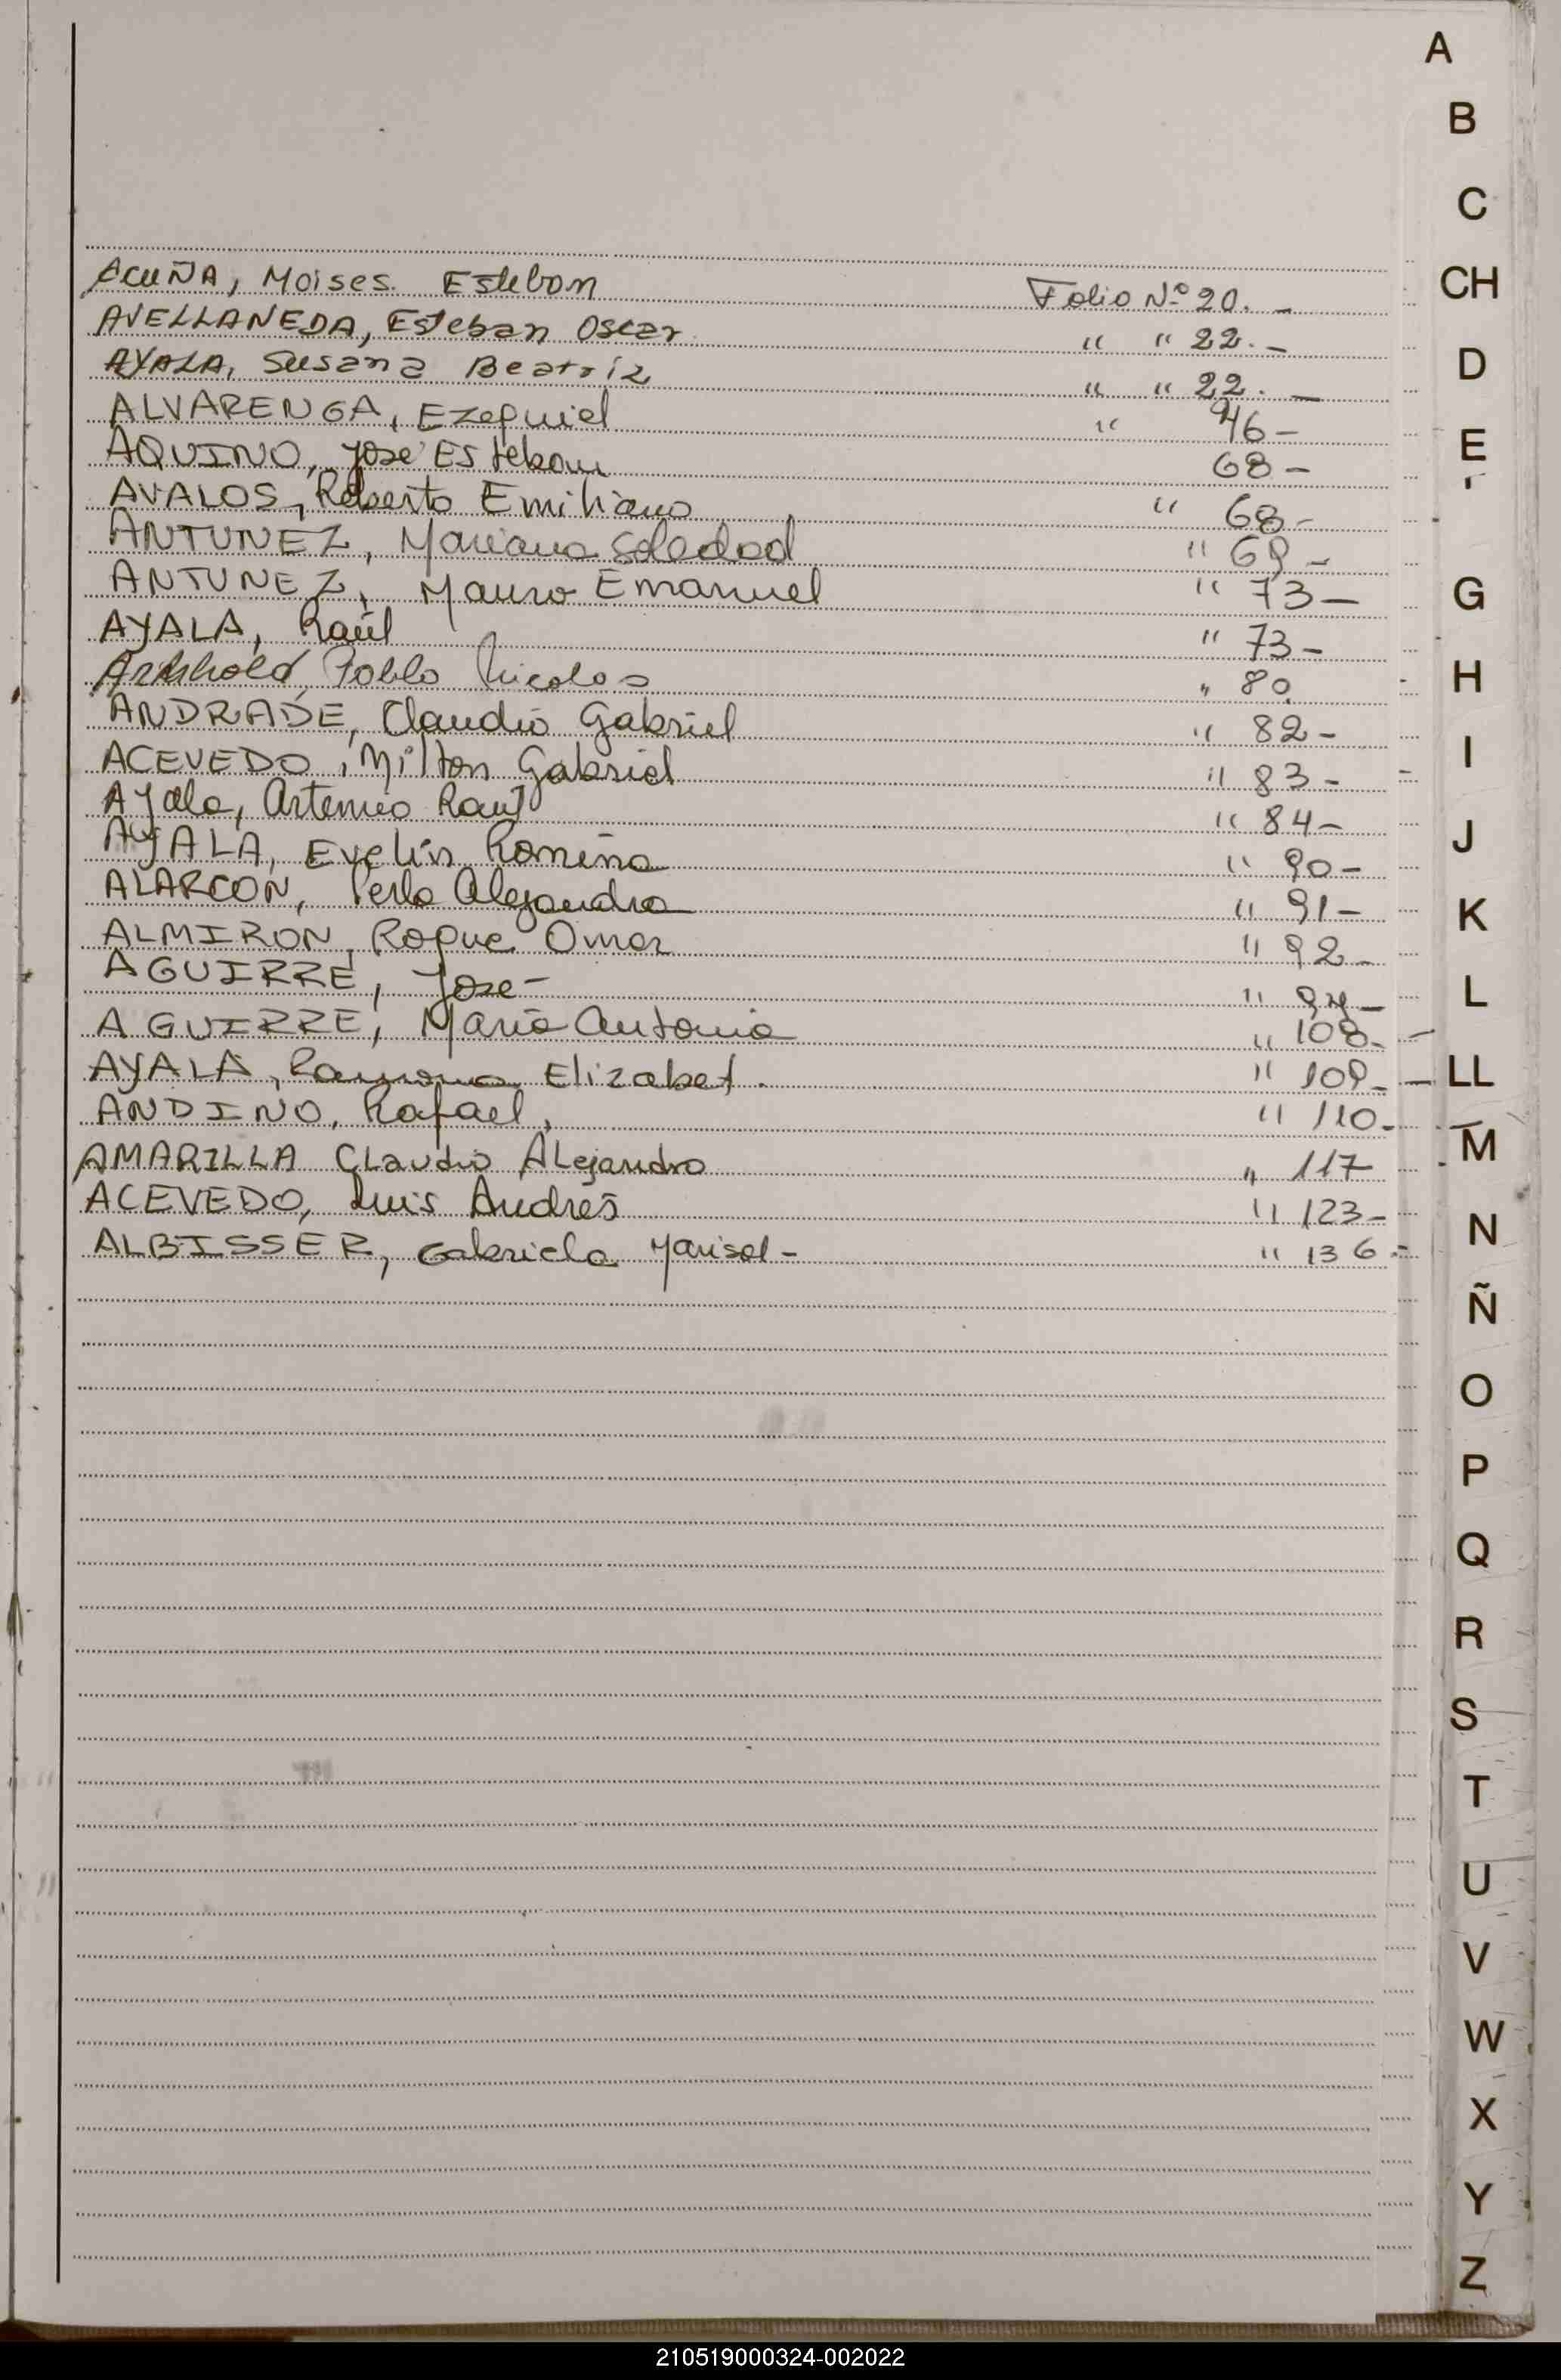 A
B
C
CH
D
E
G
H
I
J
K
L
LL
M
N
Ñ
O
P
Q
R
S
T
U
V
W
X
Y
Z
ACUÑA, Moises Esteban Folio Nº 20. -
AVELLANEDA, Esteban Oscar " " 22. -
AYALA, Susana Beatriz " " 22. -
ALVARENGA, Ezequiel " 46 -
AQUINO, José Esteban 68 -
AVALOS, Roberto Emiliano " 68 -
ANTUNEZ, Mariana Soledad " 69 -
ANTUNEZ, Mauro Emanuel " 73 -
AYALA, Raúl " 73 -
Pablo Nicolas " 80.
ANDRADE, Claudio Gabriel " 82 -
ACEVEDO, Milton Gabriel " 83 -
Ayala, Artemio Raul " 84 -
AYALA, Evelin Romina " 90 -
ALARCON, Perla Alejandra " 91 -
ALMIRON, Roque Omar " 92 -
AGUIRRE, José - "
AGUIRRE, Maria Antonia " 108. -
AYALA, Ramona Elizabet. " 109. -
ANDINO, Rafael, " 110. -
AMARILLA Claudio Alejandro " 117
ACEVEDO, Luis Andres " 123 -
ALBISSER, Gabriela Marisol - " 136 . -
210519000324-002022